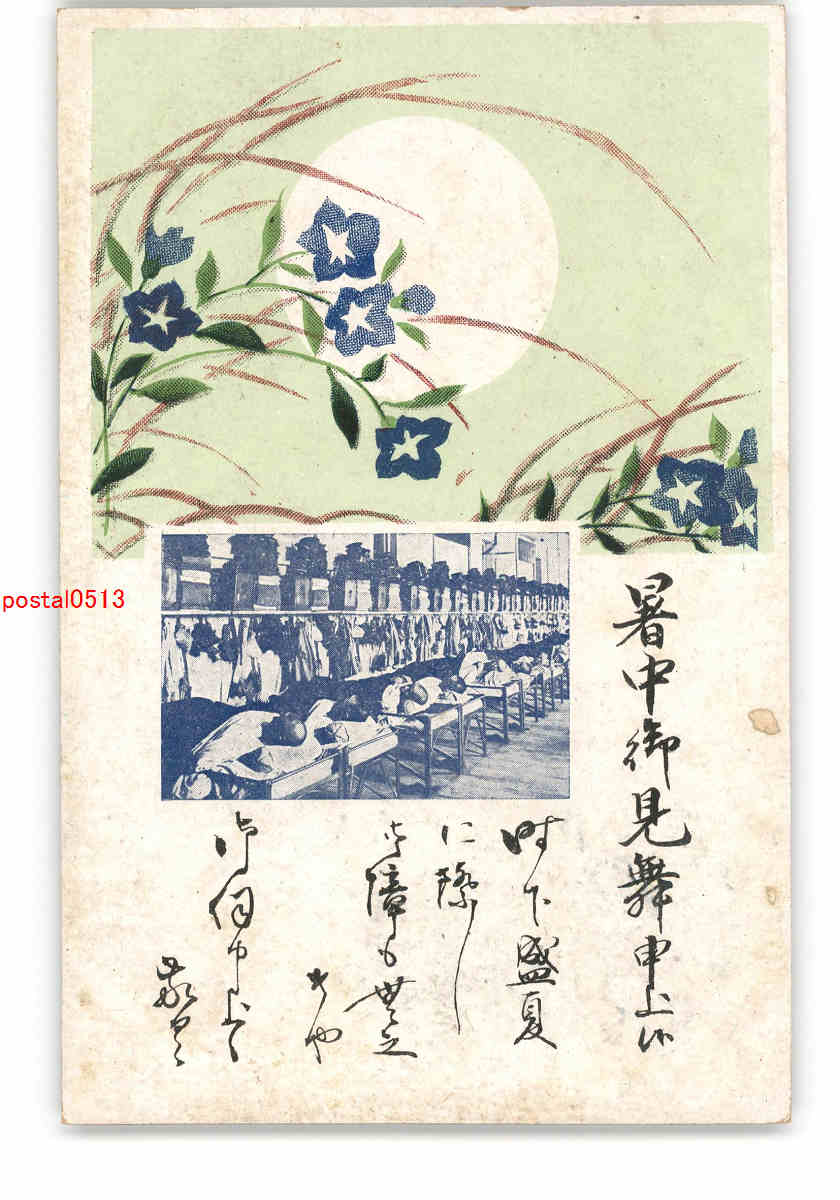 暑中御見舞申上候
時下盛夏
に際し
御障も無之
候や
御伺申上候
敬具
postal0513